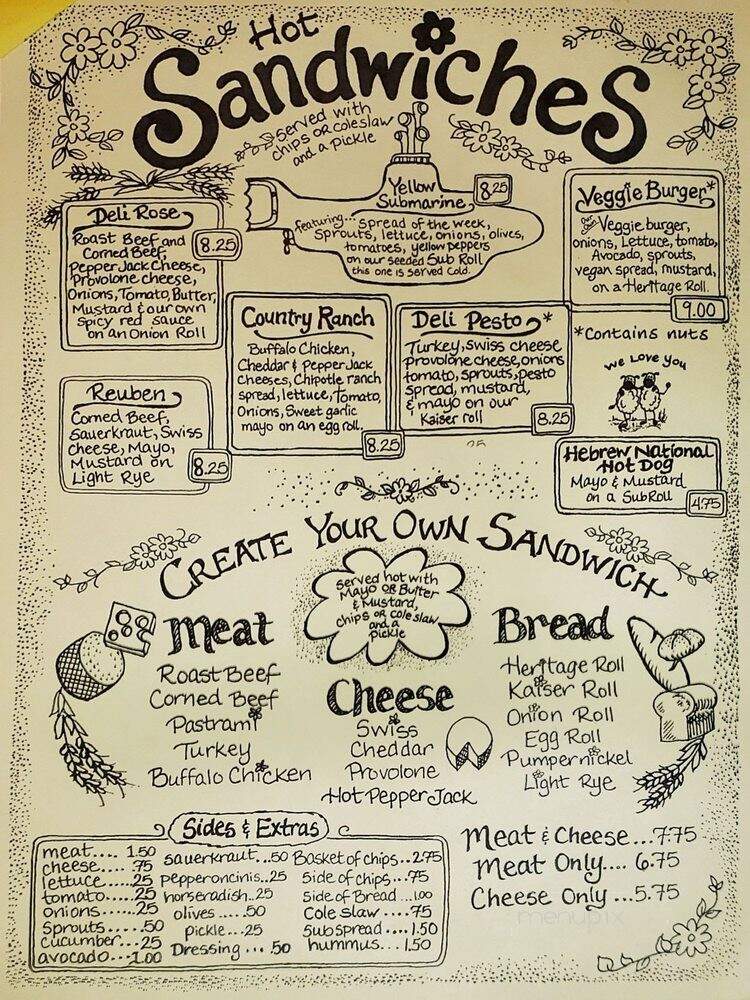 Hot
Sandwiches
Served with
chips or coleslaw
and a Pickle
Deli Rose
Roast Beef and
Corned Beef,
Pepper Jack Cheese,
Provolone cheese,
Onions, Tomato, Butter,
Mustard & our own
spicy red sauce
on an Onion Roll
8.25
Yellow
Submarine
8.25
featuring... Spread of the week,
Sprouts, lettuce, onions, olives,
tomatoes, yellow peppers
on our seeded Sub Roll
this one is served cold.
Veggie Burger*
Our Own Veggie burger,
onions, Lettuce, tomato,
Avocado, sprouts,
vegan spread, mustard,
on a Heritage Roll.
9.00
*Contains nuts
Country Ranch
Buffalo Chicken,
Cheddar & Pepper Jack
Cheeses, Chipotle ranch
spread, lettuce, Tomato,
Onions, Sweet garlic
mayo on an egg roll.
8.25
Deli Pesto *
Turkey, swiss cheese
Provolone cheese, onions
tomato, sprouts, pesto
spread, mustard,
& mayo on our
Kaiser roll
8.25
We Love You
Reuben
Corned Beef,
Sauerkraut, Swiss
cheese, Mayo,
Mustard on
Light Rye
8.25
Hebrew National
Hot Dog
Mayo & Mustard
on a Sub Roll
4.75
Create Your Own Sandwich
Served hot with
Mayo or Butter
& Mustard,
chips or cole slaw
and a
pickle
Meat
Roast Beef
Corned Beef
Pastrami
Turkey
Buffalo Chicken
Cheese
Swiss
Cheddar
Provolone
Hot Pepper Jack
Bread
Heritage Roll
Kaiser Roll
Onion Roll
Egg Roll
Pumpernickel
Light Rye
Sides & Extras
meat.... 1.50
cheese.... .75
lettuce.....25
tomato.....25
onions.....25
sprouts.....50
cucumber...25
avocado...1.00
sauerkraut...50
pepperoncinis..25
horseradish..25
olives .....50
pickle...25
Dressing ... .50
Basket of chips..2.75
side of chips...75
side of Bread ...1.00
Cole slaw ....75
sub spread....1.50
hummus... 1.50
Meat & Cheese...7.75
Meat Only.... 6.75
Cheese Only ...5.75
menupix